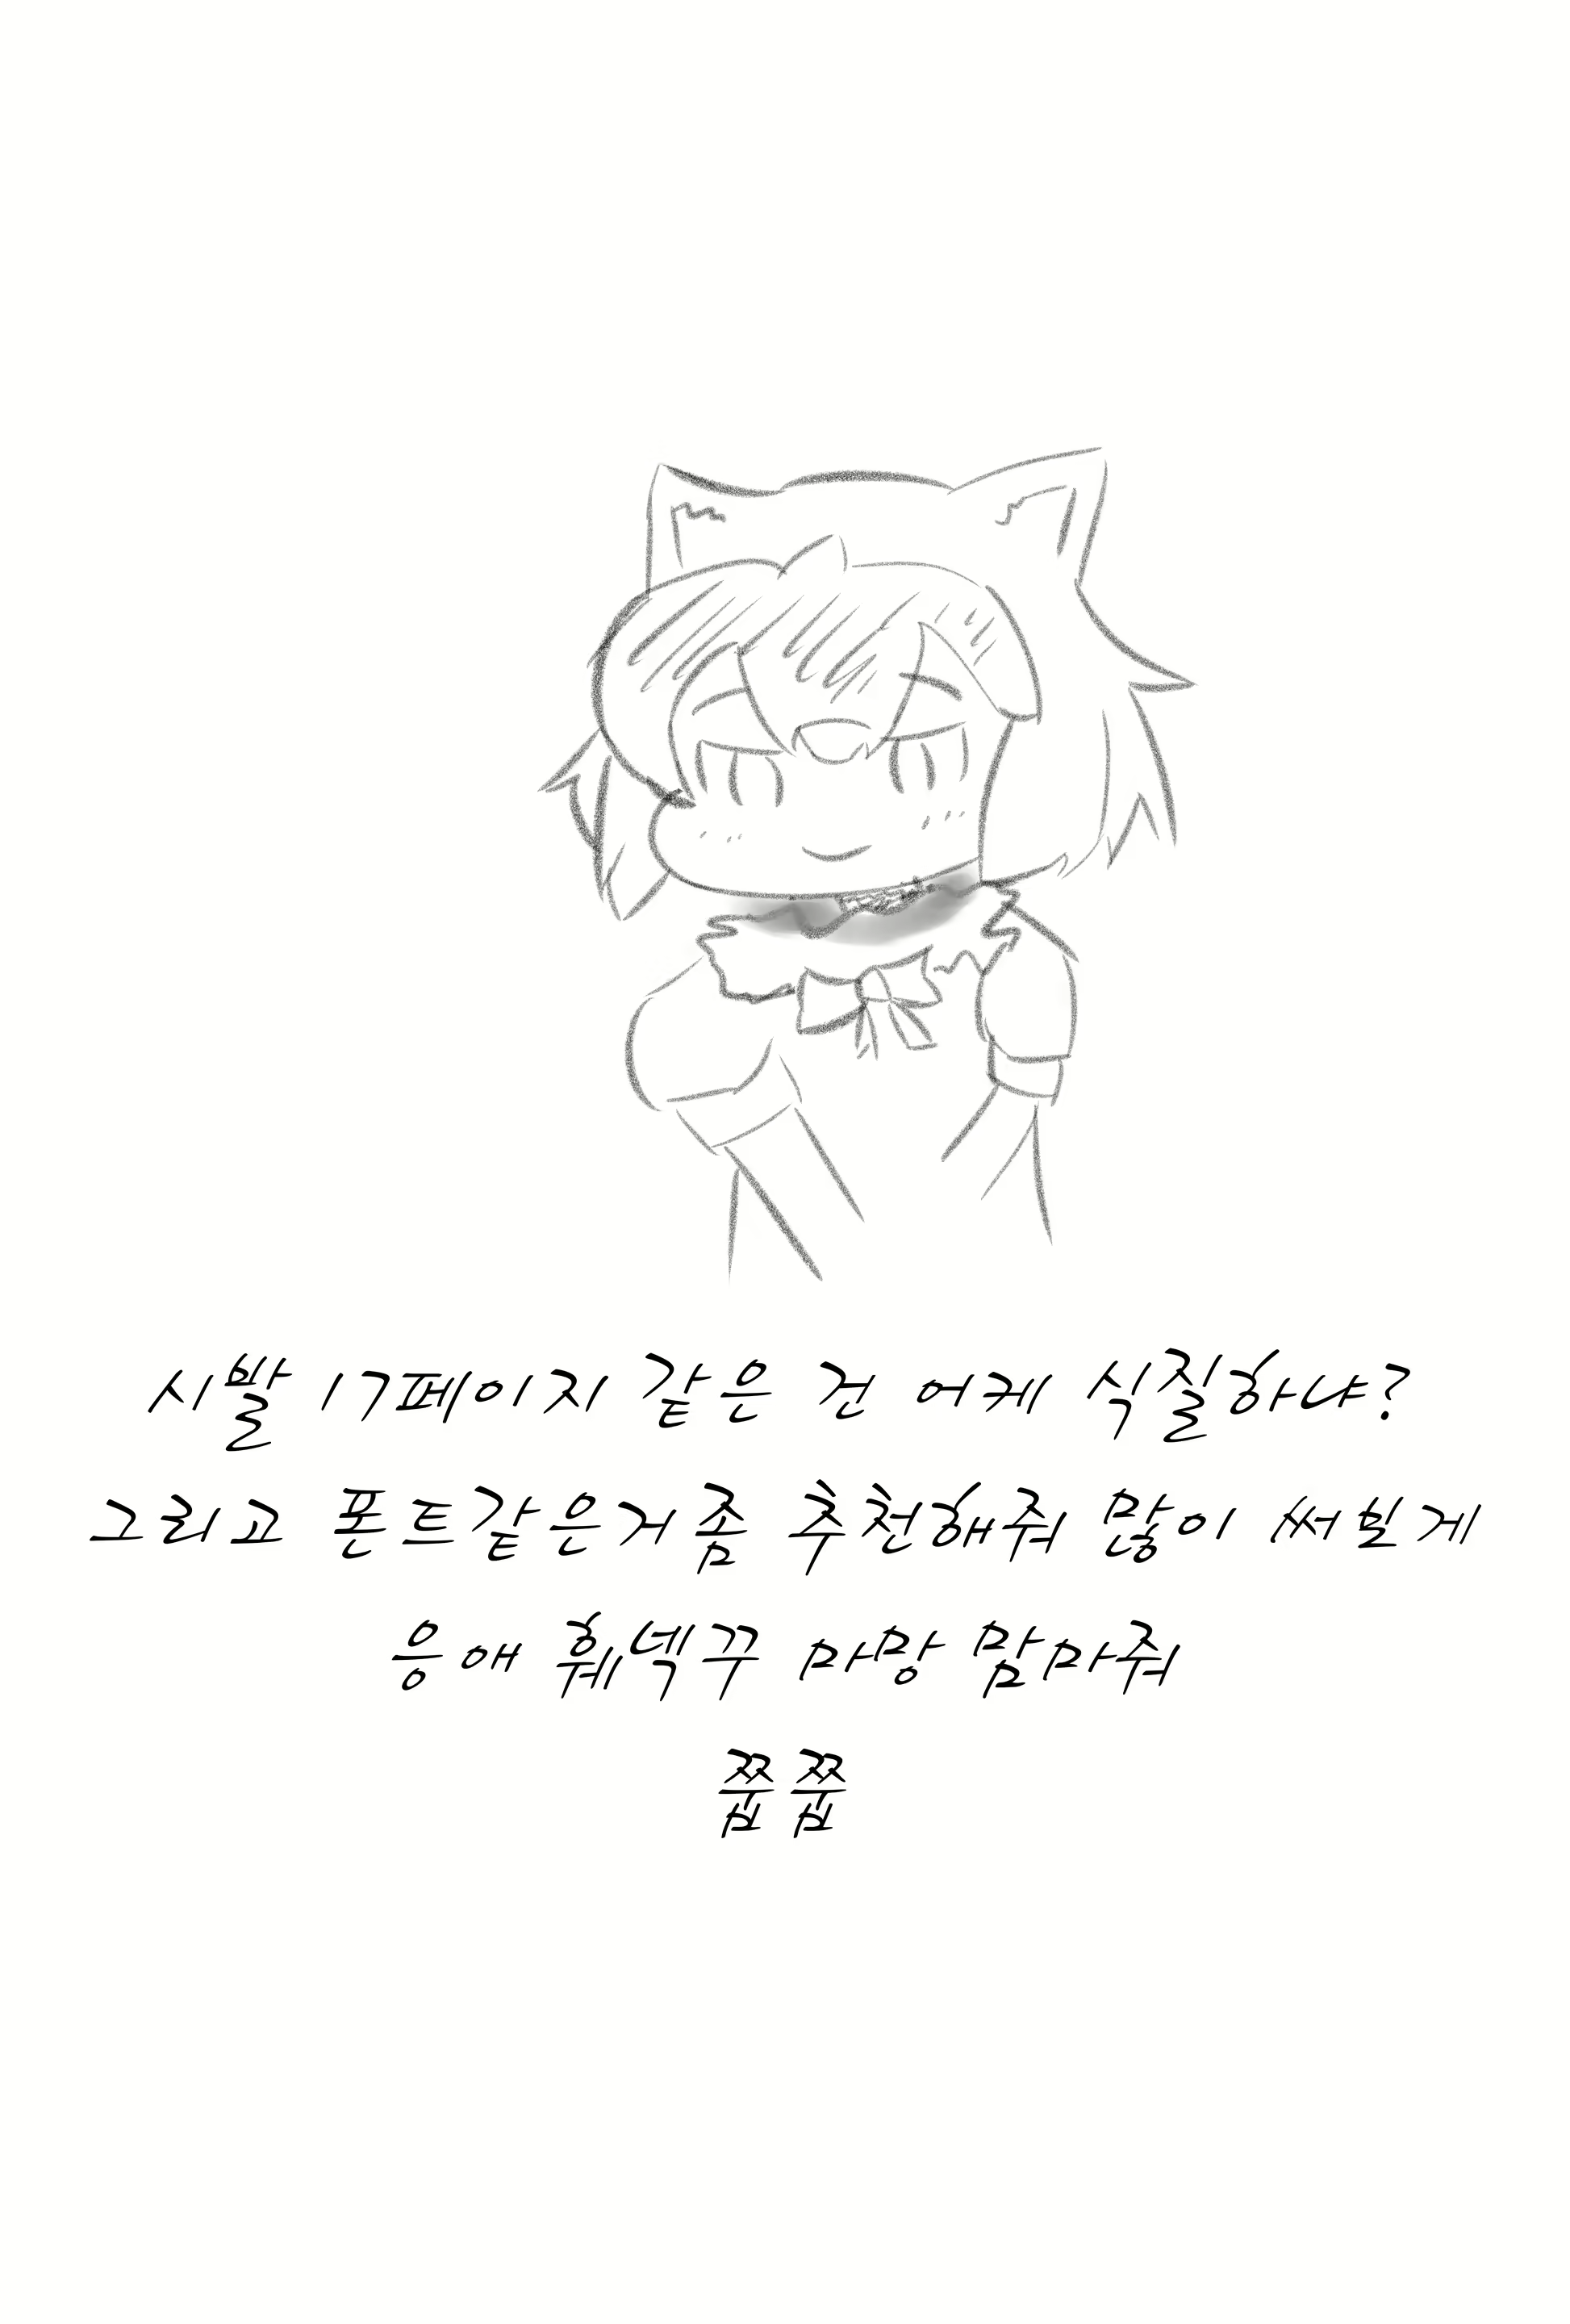 시발 17페이지 같은 건 어케 식질하냐?
그리고 폰트같은거좀 추천해줘 많이 써보게
응애 훼넥꾸 마망 맘마줘
쭙쭙